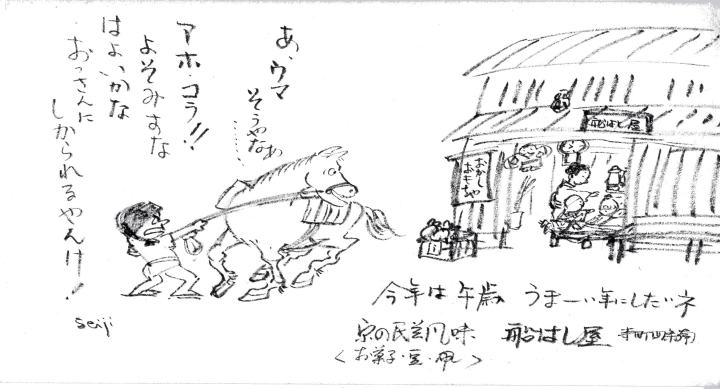 あ、ウマ
そうやなぁ
………
アホ・コラ!!
よそみすな
はよいかな
おっさんに
しかられるやんけ!
seiji
船はし屋
おかし
おもちゃ
今年は午歳 うまーい年にしたいネ
京の民芸風味 船はし屋 寺町四条
<お菓子・豆・帆>